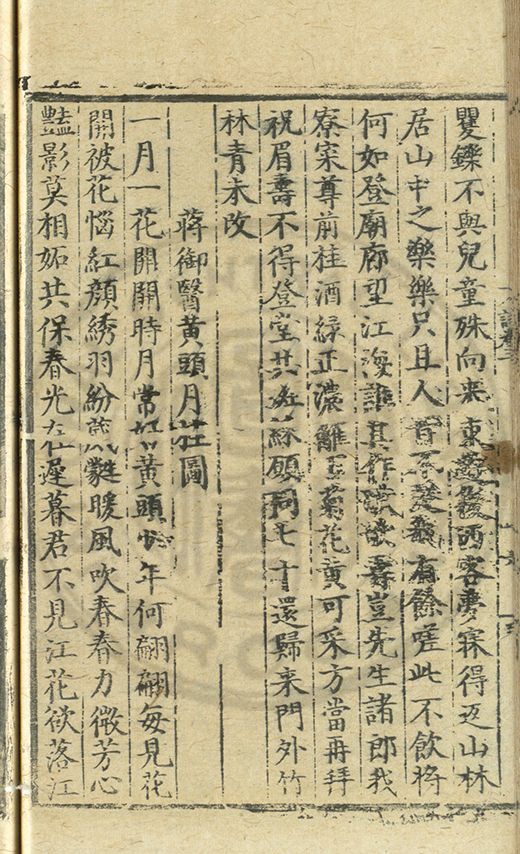 矍鑠不與兒童殊向來東西客夢寐得返山林
居山中之樂樂只且人有餘嗟此不飲將
何如登廟廊望江漢誰其作歌歌壽豈先生諸郎我
寮寀尊前桂酒綠正濃籬菊花黃可采方當再拜
祝眉壽不得登堂共願同七十還歸來門外竹
林青未改
蔣御醫黃頭月在圖
一月一花開開時月常黃頭少年何翩翩每見花
開被花惱紅顏綉羽紛暖風吹春春力微芳心
豔影莫相妬共保春光在遲暮君不見江花欲落江